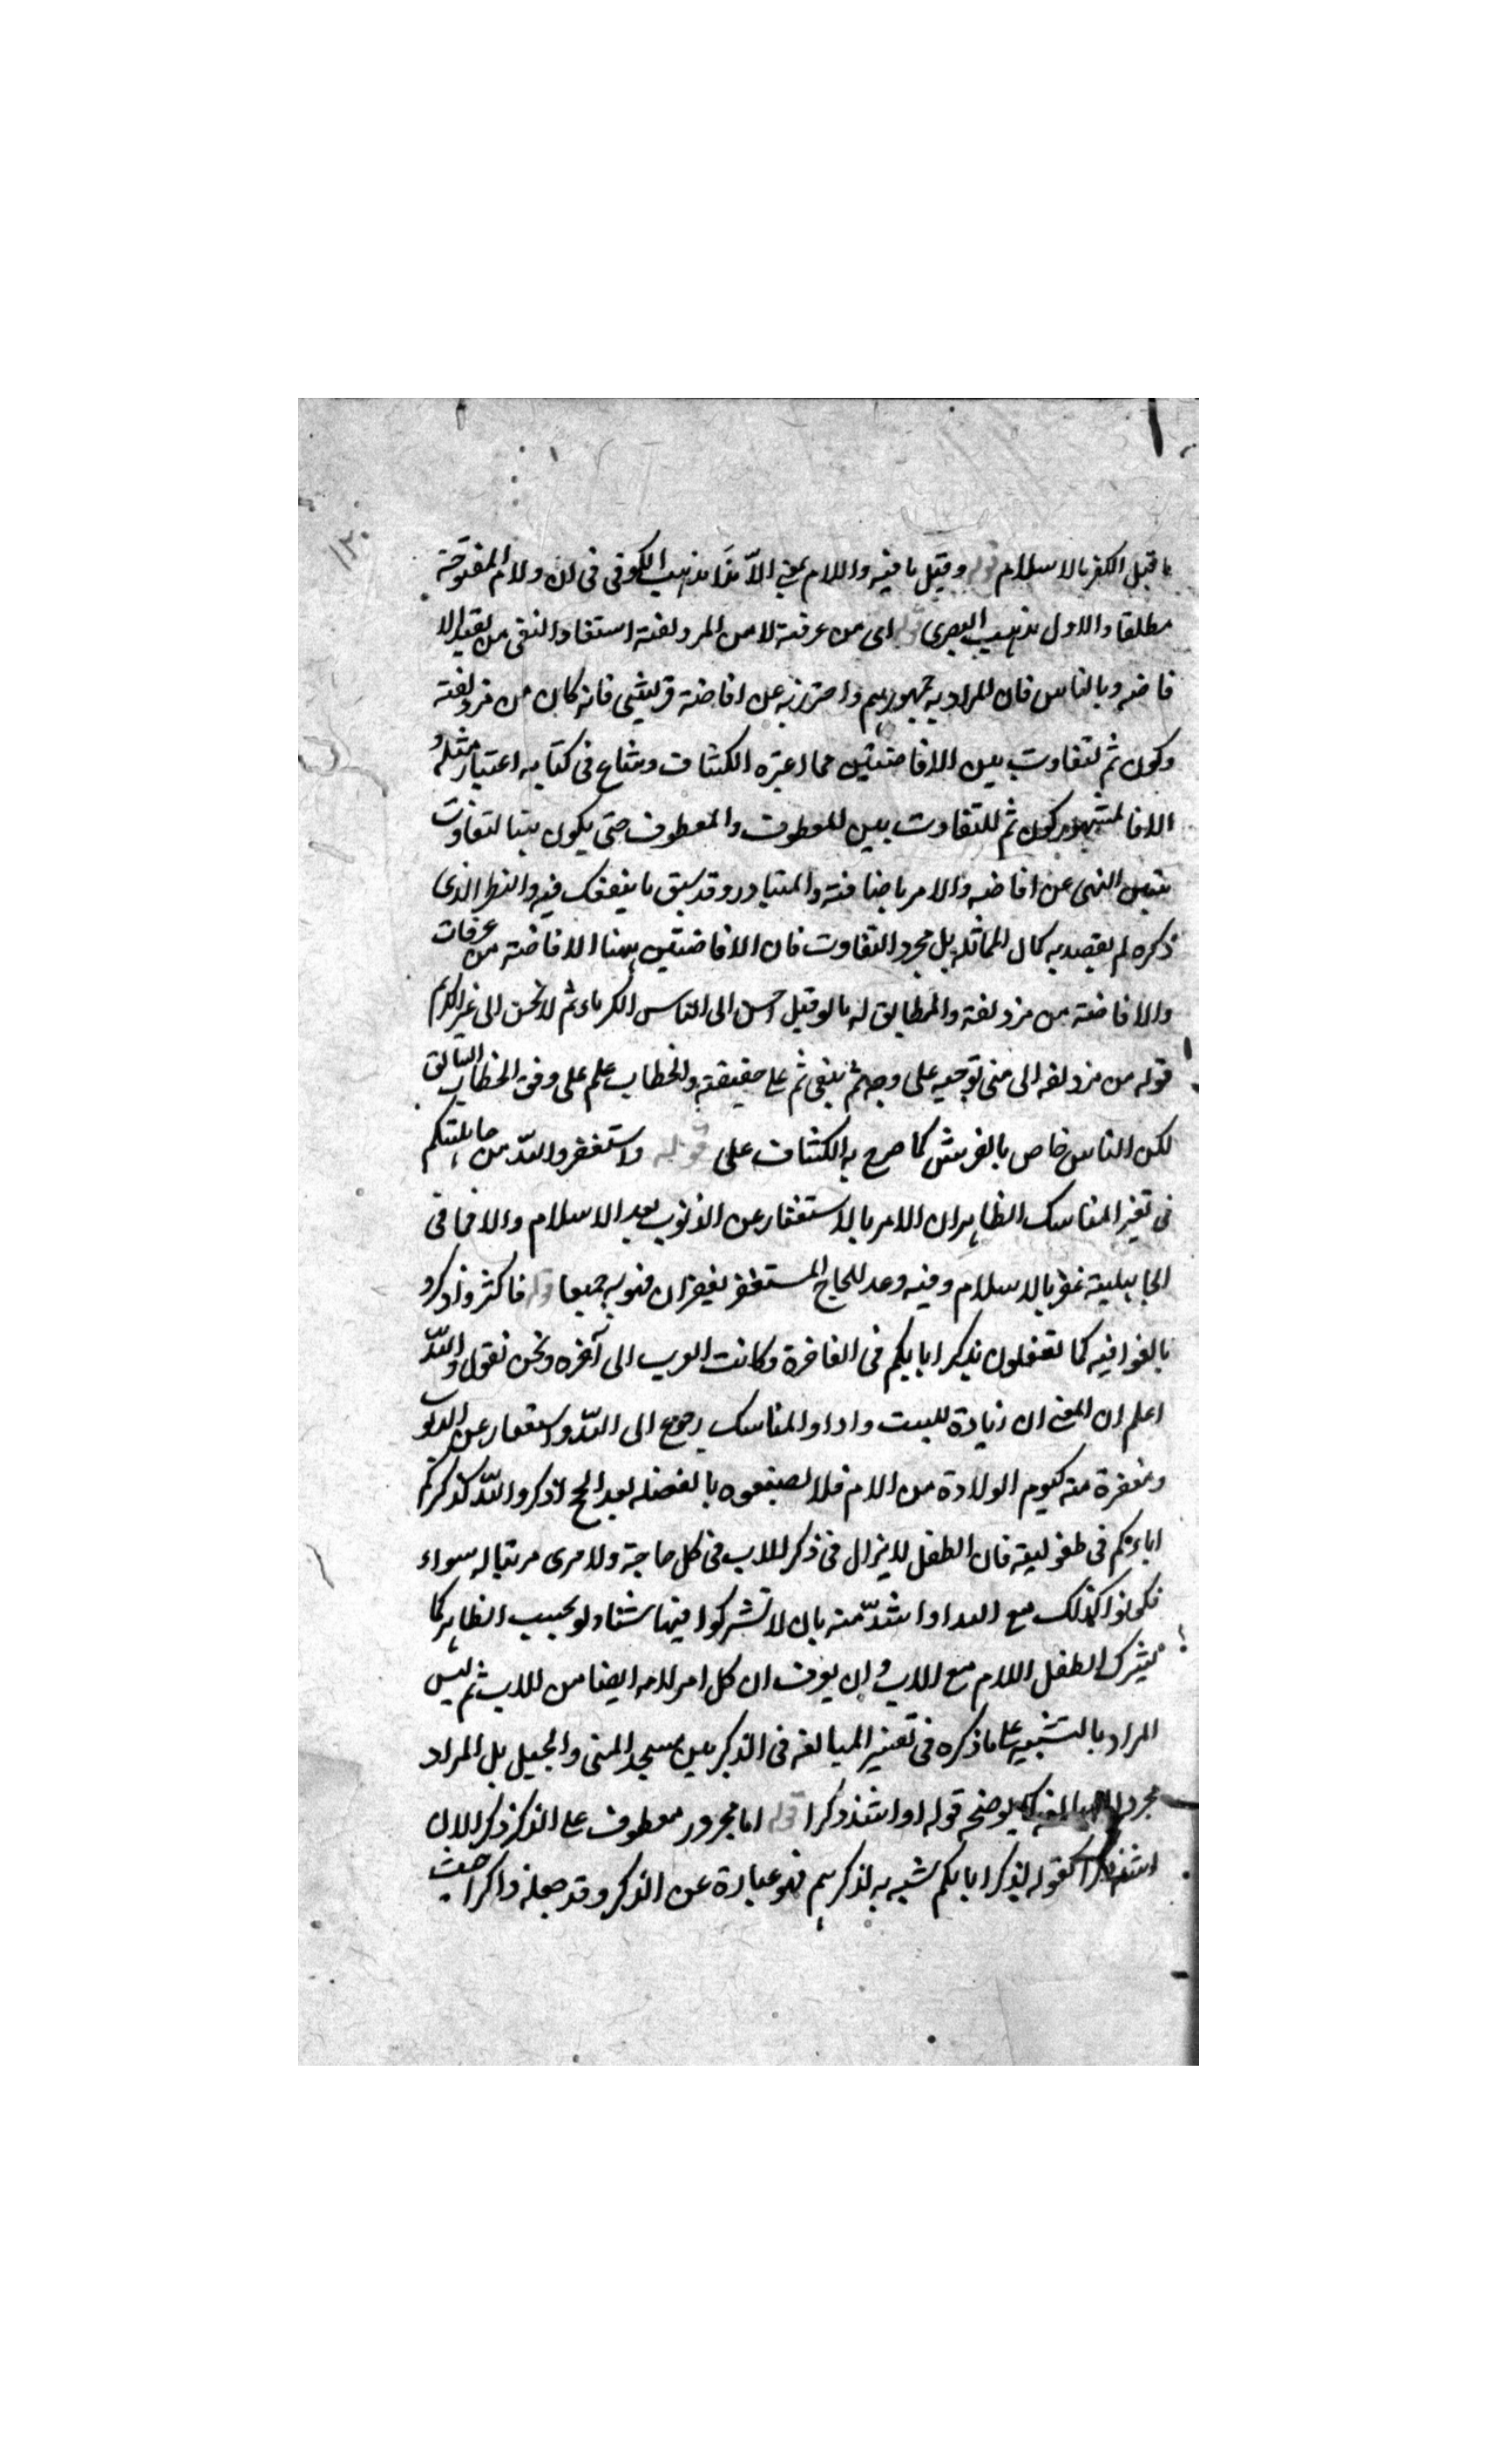 ١٣٠
ما قبل الكفر بالاسلام قوله وقيل نافيه واللام بمعنى الّا هذا مذهب الكوفى فى ان ولام المفتوحة
مطلقا والاول مذهب البصرى قوله اى من عرفة لا من المزدلفة استفاد النفى من تقييد الا
فاضه وبالناس فان المراد به جمهورهم واحترز به عن افاضة قريش فانه كان من مزدلفة
وكون ثم لتفاوت بين الافاضتين مما اعتبره الكشاف وشاع فى كتابه اعتبار مثله
الا ان المشهور كون ثم للتفاوت بين المعطوف والمعطوف حتى يكون هنا لتفاوت
بين النهى عن افاضه والامر باضافته والمتبادر وقد سبق ما ينفعك فيه والنظر الذى
ذكره لم يقصد به كمال المماثلة بل مجرد التفاوت فان الافاضتين هنا الافاضة من عرفات
والافاضة من مزدلفة والمطابق له ما لو قيل احسن الى الناس الكرماء ثم لا تحسن الى غير الكريم
قوله من مزدلفه الى منى توجيه على وجه ثم يبقى ثم على حقيقته والخطاب علم على وفق الخطاب السابق
لكن الناس خاص بالقريش كما صرح به الكشاف على قوله واستغفروا الله من جاهليتكم
فى تغير المناسك الظاهر ان الامر بالاستغفار عن الذنوب بعد الاسلام والا فما فى
الجاهلية غفر بالاسلام وفيه وعد للحاج المستغفر بغفران ذنوبه جميعا قوله فاكثروا ذكره
بالغوا فيه كما تفعلون بذكر ابايكم فى الفاخرة وكانت العرب الى آخره ونحن نقول والله
اعلم ان المعنى ان زيادة للبيت واداء المناسك رجوع الى الله واستغفار عن الذنوب
ومغفرة منه كيوم الولادة من الام فلا تضيعوه بالغفلة بعد الحج اذكروا الله كذكركم
اباءكم فى طفوليته فان الطفل لا يزال فى ذكر الاب فى كل حاجة ولا يرى مرتبا له سواء
فكونوا كذلك مع الله او اشدّ منه بان لا تشركوا فيها شئا ولو بحسب الظاهر كما
يشرك الطفل اللام مع الاب وان يعرف ان كل امر لامه ايضا من الاب ثم ليس
المراد بالتشبيه على ما ذكره فى تفسير المبالغه فى الذكر بين مسجد المنى والجبل بل المراد
مجرد المبالغة يوضحه قوله او اشد ذكرا قوله اما مجرور معطوف على الذكر ذكر الان
اشد ذكرا كقوله لذكر ابايكم شبه به لذكرهم فهو عبارة عن الذكر وقد جعله ذاكرا حيث